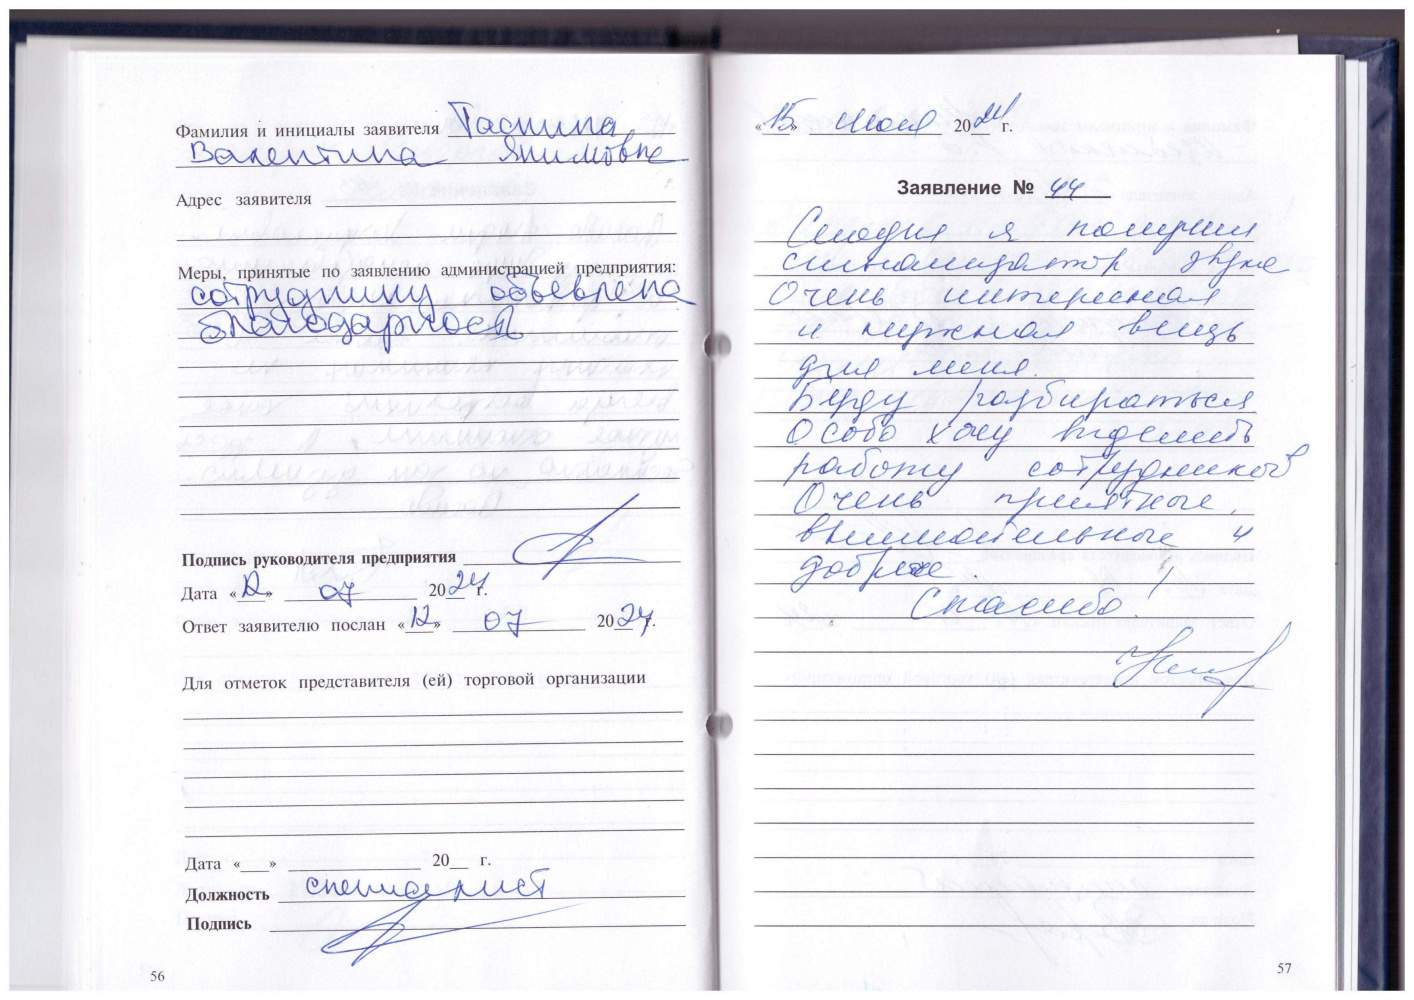 Фамилия и инициалы заявителя
Валентина Якимовне
Адрес заявителя
Меры, принятые по заявлению администрацией предприятия:
сотруднику объевлена
благодарность
Подпись руководителя предприятия
Дата «12» 07 2024 г.
Ответ заявителю послан «12» 07 2024 г.
Для отметок представителя (ей) торговой организации
Дата «___» 20__ г.
Должность специалист
Подпись
56
«15» Июля 2024 г.
Заявление № 44
Сегодня я получил
сигнализатор звука
Очень интересная
и нужная вещь
для меня.
Буду разбираться
Особо хочу выделить
работу сотрудников
Очень приятные,
внимательные и
добрые.
Спасибо!
57